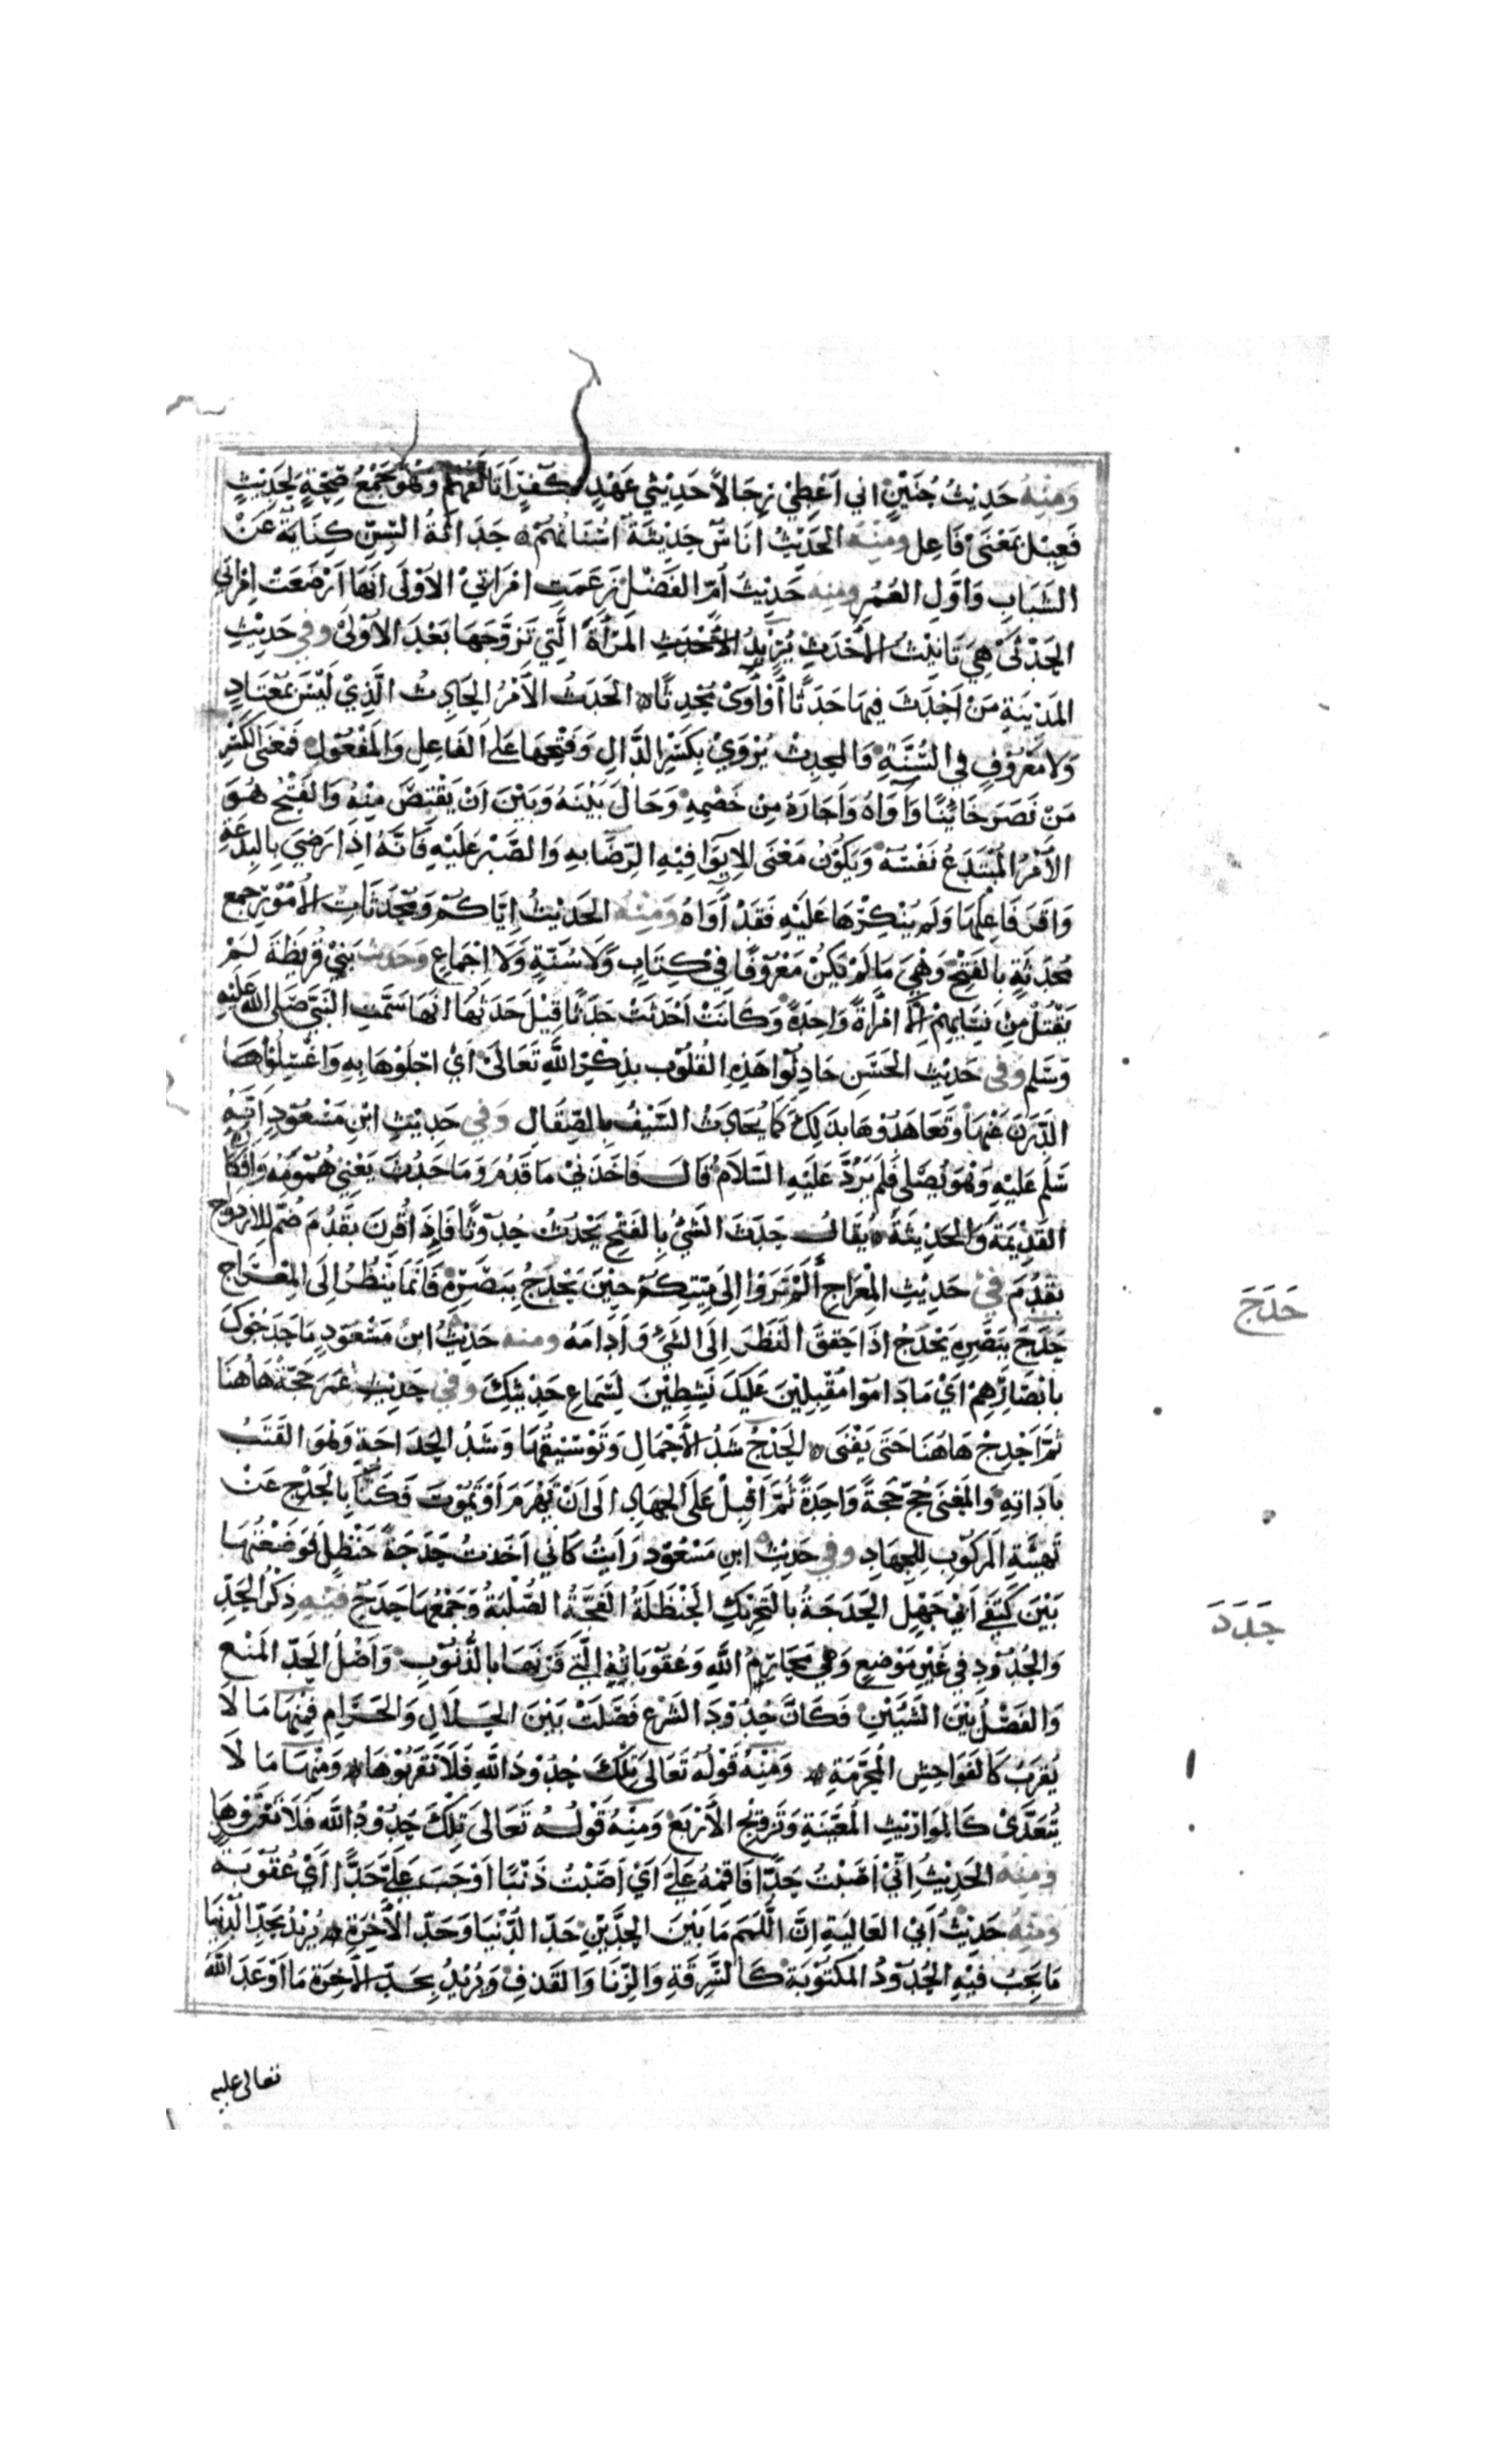 ومنه حديث حنين اني اعطي رجالا حديثي عهد بكفر اتالفهم وهو جمع صحة لحديث
فعيل بمعنى فاعل ومنه الحديث اناس حديثة اسنانهم حداثة السن كناية عن
الشباب واول العمر ومنه حديث ام الفضل زعمت امراتي الاولى انها ارضعت امراتي
الحدثى هي تانيث الاحدث يريد المراة التي تزوجها بعد الاولى وفي حديث
المدينة من احدث فيها حدثا او آوى محدثا الحدث الامر الحادث الذي ليس بمعتاد
ولا معروف في السنة والمحدث يروى بكسر الدال وفتحها على الفاعل والمفعول فمعنى الكسر
من نصر خائنا وآواه واجاره من خصمه وحال بينه وبين ان يقتص منه والفتح هو
الامر المبتدع نفسه ويكون معنى الايوا فيه الرضا به والصبر عليه فانه اذا رضي بالبدعة
واقر فاعلها ولم ينكرها عليه فقد آواه ومنه الحديث اياكم ومحدثات الامور جمع
محدثة بالفتح وهي ما لم يكن معروفا في كتاب ولا سنة ولا اجماع وحديث بني قريظة لم
يقتل من نسايهم الا امراة واحدة وكانت احدثت حدثا قيل حدثها انها سمت النبي صلى الله عليه
وسلم وفي حديث الحسن حادثوا هذه القلوب بذكر الله تعالى اي اجلوها به واغسلوا
الدرن عنها وتعاهدوها بذلك كما يحادث السيف بالصقال وفي حديث ابن مسعود انه
سلم عليه وهو يصلي فلم يرد عليه السلام قال فاخذني ما قدم وما حدث يعني همومه وافكاره
القديمة والحديثة يقال حدث الشي بالفتح يحدث حدوثا فاذا قرن بقدم ضم للازدواج
بقدم في حديث المعراج الم تروا الى ميتكم حين يحدج ببصره فانما ينظر الى المعراج
حدج ببصره يحدج اذا حقق النظر الى الشي وادامه ومنه حديث ابن مسعود ما حدجوك
بابصارهم اي ما داموا مقبلين عليك نشطين لسماع حديثك وفي حديث عمر حجة هاهنا
ثم احدج هاهنا حتى يفنى الحدج شد الاحمال وتوسيقها وشد الحداجة وهو القتب
باداته والمعنى حج حجة واحدة ثم اقبل على الجهاد الى ان تهرم او تموت فكنا بالحدج عن
تهيئة المركوب للجهاد وفي حديث ابن مسعود رايت كاني اخذت حدجة حنظل فوضعتها
بين كتفي ابي جهل الحدجة بالتحريك الحنظلة الفجة الصلبة وجمعها حدج فيه ذكر الحد
والحدود في غير موضع وهي محارم الله وعقوباته التي قرنها بالذنوب واصل الحد المنع
والفصل بين الشيئين فكان حدود الشرع فصلت بين الحلال والحرام فمنها ما لا
يقرب كالفواحش المحرمة ومنه قوله تعالى تلك حدود الله فلا تقربوها ومنها ما لا
يتعدى كالمواريث المعينة وتزويج الاربع ومنه قوله تعالى تلك حدود الله فلا
ومنه الحديث اني اصبت حدا فاقمه علي اي اصبت ذنبا اوجب علي حدا اي عقوبة
ومنه حديث ابي العالية ان اللمم ما بين الحدين حد الدنيا وحد الاخرة يريد بحد الدنيا
ما يجب فيه الحدود المكتوبة كالسرقة والزنا والقذف ويريد بحد الاخرة ما اوعد الله
تعالى عليه
حدج
حدد